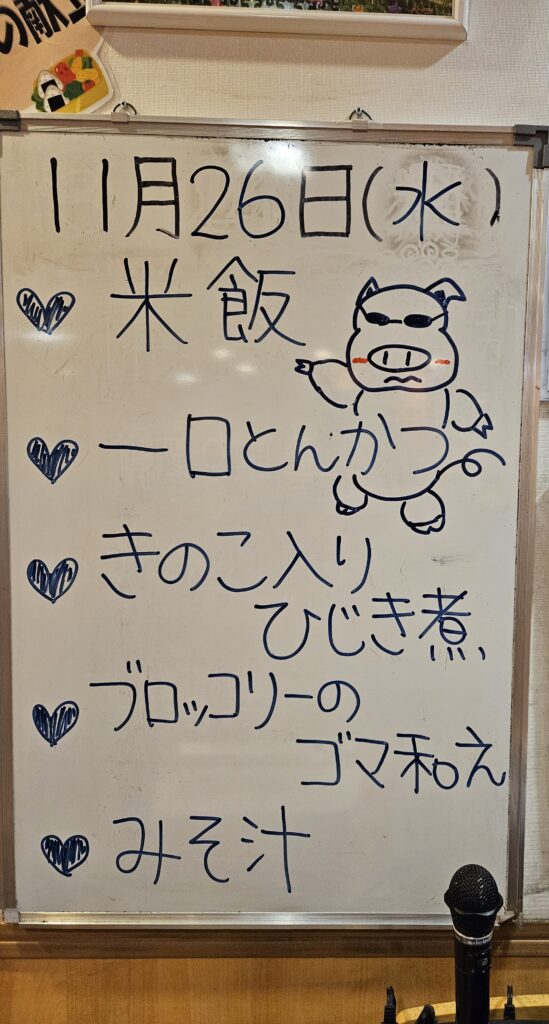 の献立
11月26日(水)
米飯
一口とんかつ
きのこ入り
ひじき煮
ブロッコリーの
ゴマ和え
みそ汁